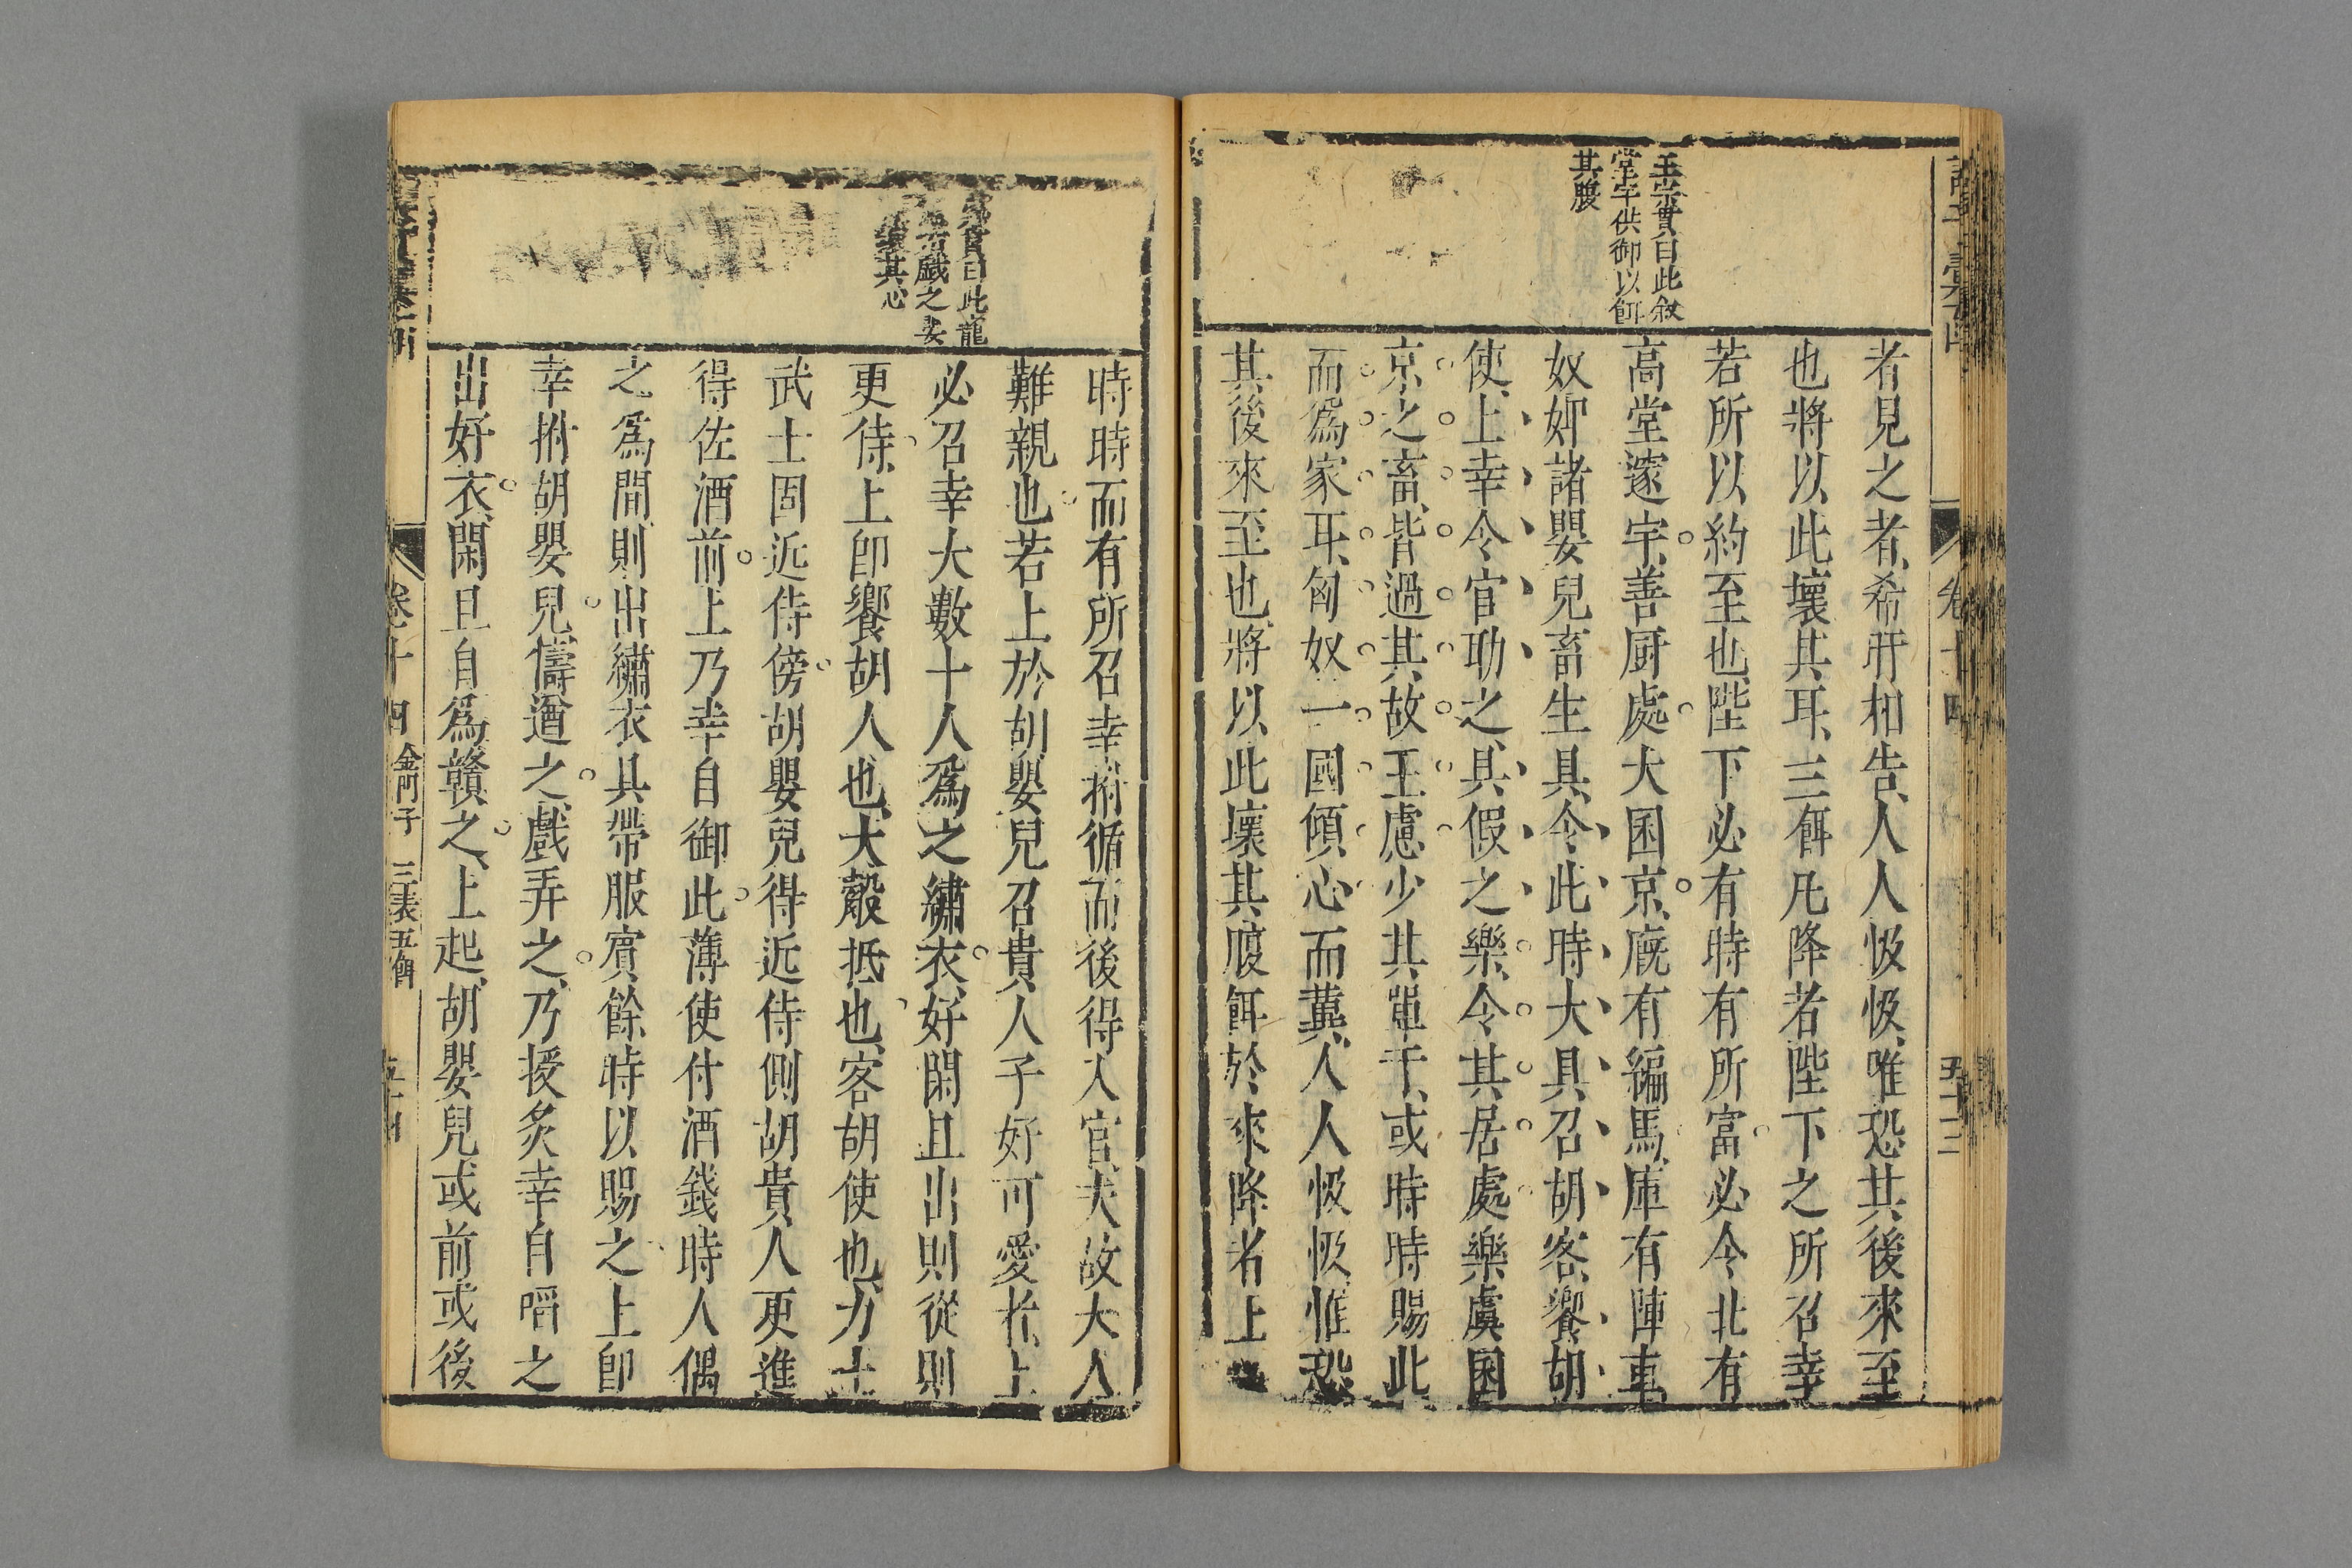 卷十四
五十三
王宗貫曰此敘
堂宇供御以餌
其腹
者見之者希盱相告人人忣忣唯恐其後來至
也將以此壞其耳三餌凡降者陛下之所召幸
若所以約至也陛下必有時有所富必令北有
高堂邃宇善厨處大囷京廐有編馬庫有陣車
奴婢諸嬰兒畜生具令此時大具召胡客饗胡
使上幸令官助之具假之樂令其居處樂虞囷
京之畜皆過其故王慮少其單于或時時賜此
而為家耳匈奴一國傾心而冀人人忣忣惟恐
其後來至也將以此壞其腹餌於來降者上
曰此寵
戲之要
其心
時時而有所召幸拊循而後得入官夫故大人
難親也若上於胡嬰兒召貴人子好可愛者上
必召幸大數十人為之繡衣好閑且出則從則
更侍上卽饗胡人也大觳抵也客胡使也力士
武士固近侍傍胡嬰兒得近侍側胡貴人更進
得佐酒前上乃幸自御此薄使付酒錢時人偶
之為間則出繡衣具帶服賓餘時以賜之上卽
幸拊胡嬰兒擣遒之戲弄之乃授炙幸自㗖之
出好衣閑且自為贛之上起胡嬰兒或前或後
卷十四 金門子 三表五餌